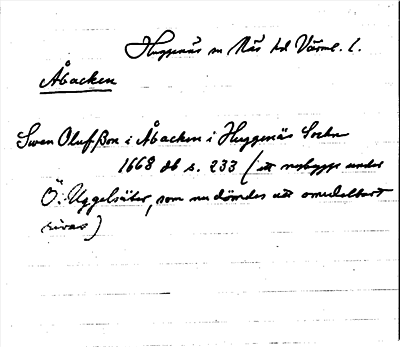 Huggenäs sn Näs hd Värml. l.
Åbacken
Swen Olufsson i Åbacken i Huggenäs Sochn
1668 db s. 233 (ett nybygge under
Ö. Uggelsäter, som nu dömdes att omedelbart
rivas)